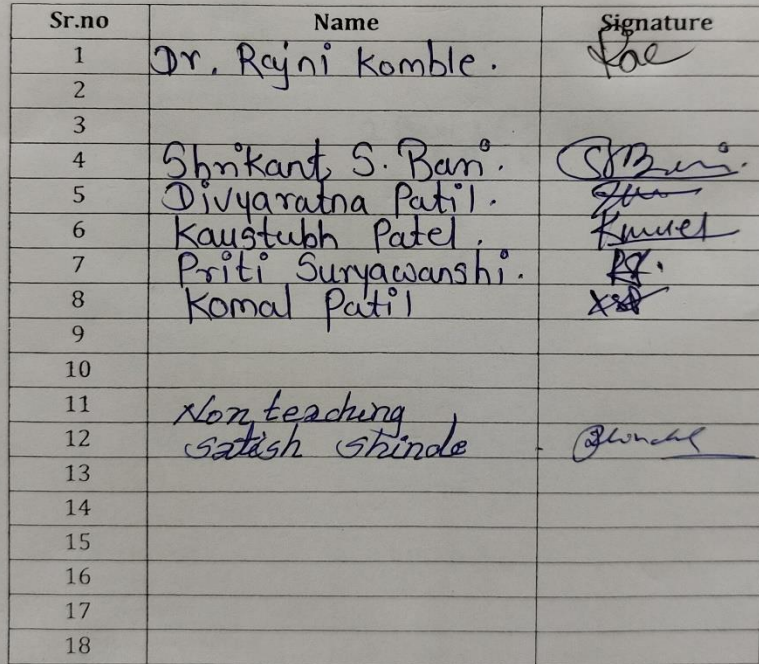 Sr.no Name Signature
1 Dr. Rajni Komble.
2
3
4 Shrikant S. Bari.
5 Divyaratna Patil.
6 Kaustubh Patel.
7 Priti Suryawanshi.
8 Komal Patil
9
10
11 Non teaching
12 Satish Shinde
13
14
15
16
17
18